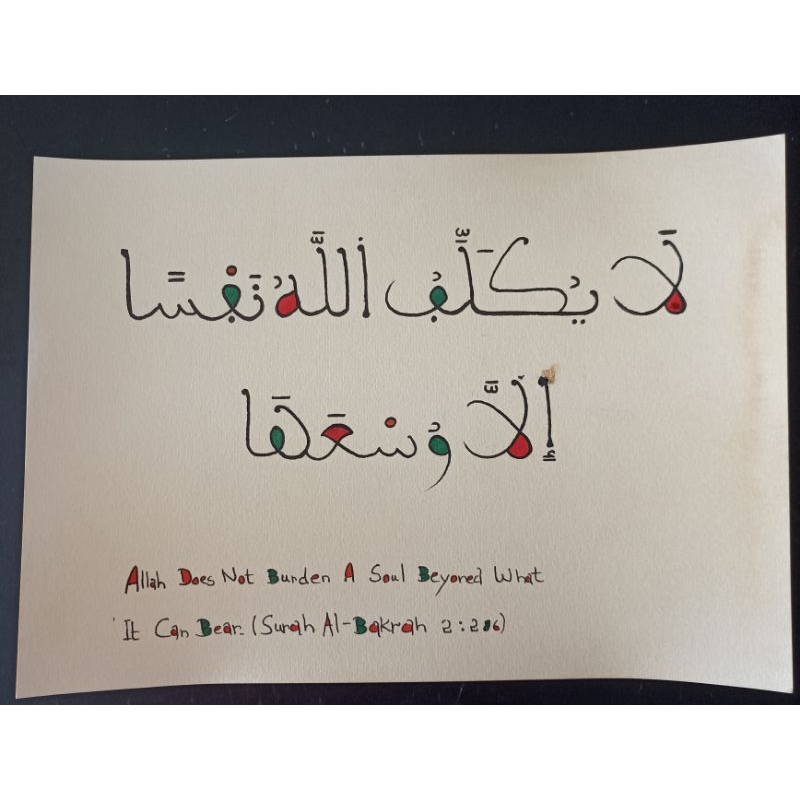 لَا يُكَلِّفُ اللَّهُ نَفْسًا
إِلَّا وُسْعَهَا
Allah Does Not Burden A Soul Beyoned What
It Can Bear. (Surah Al-Bakrah 2:286)